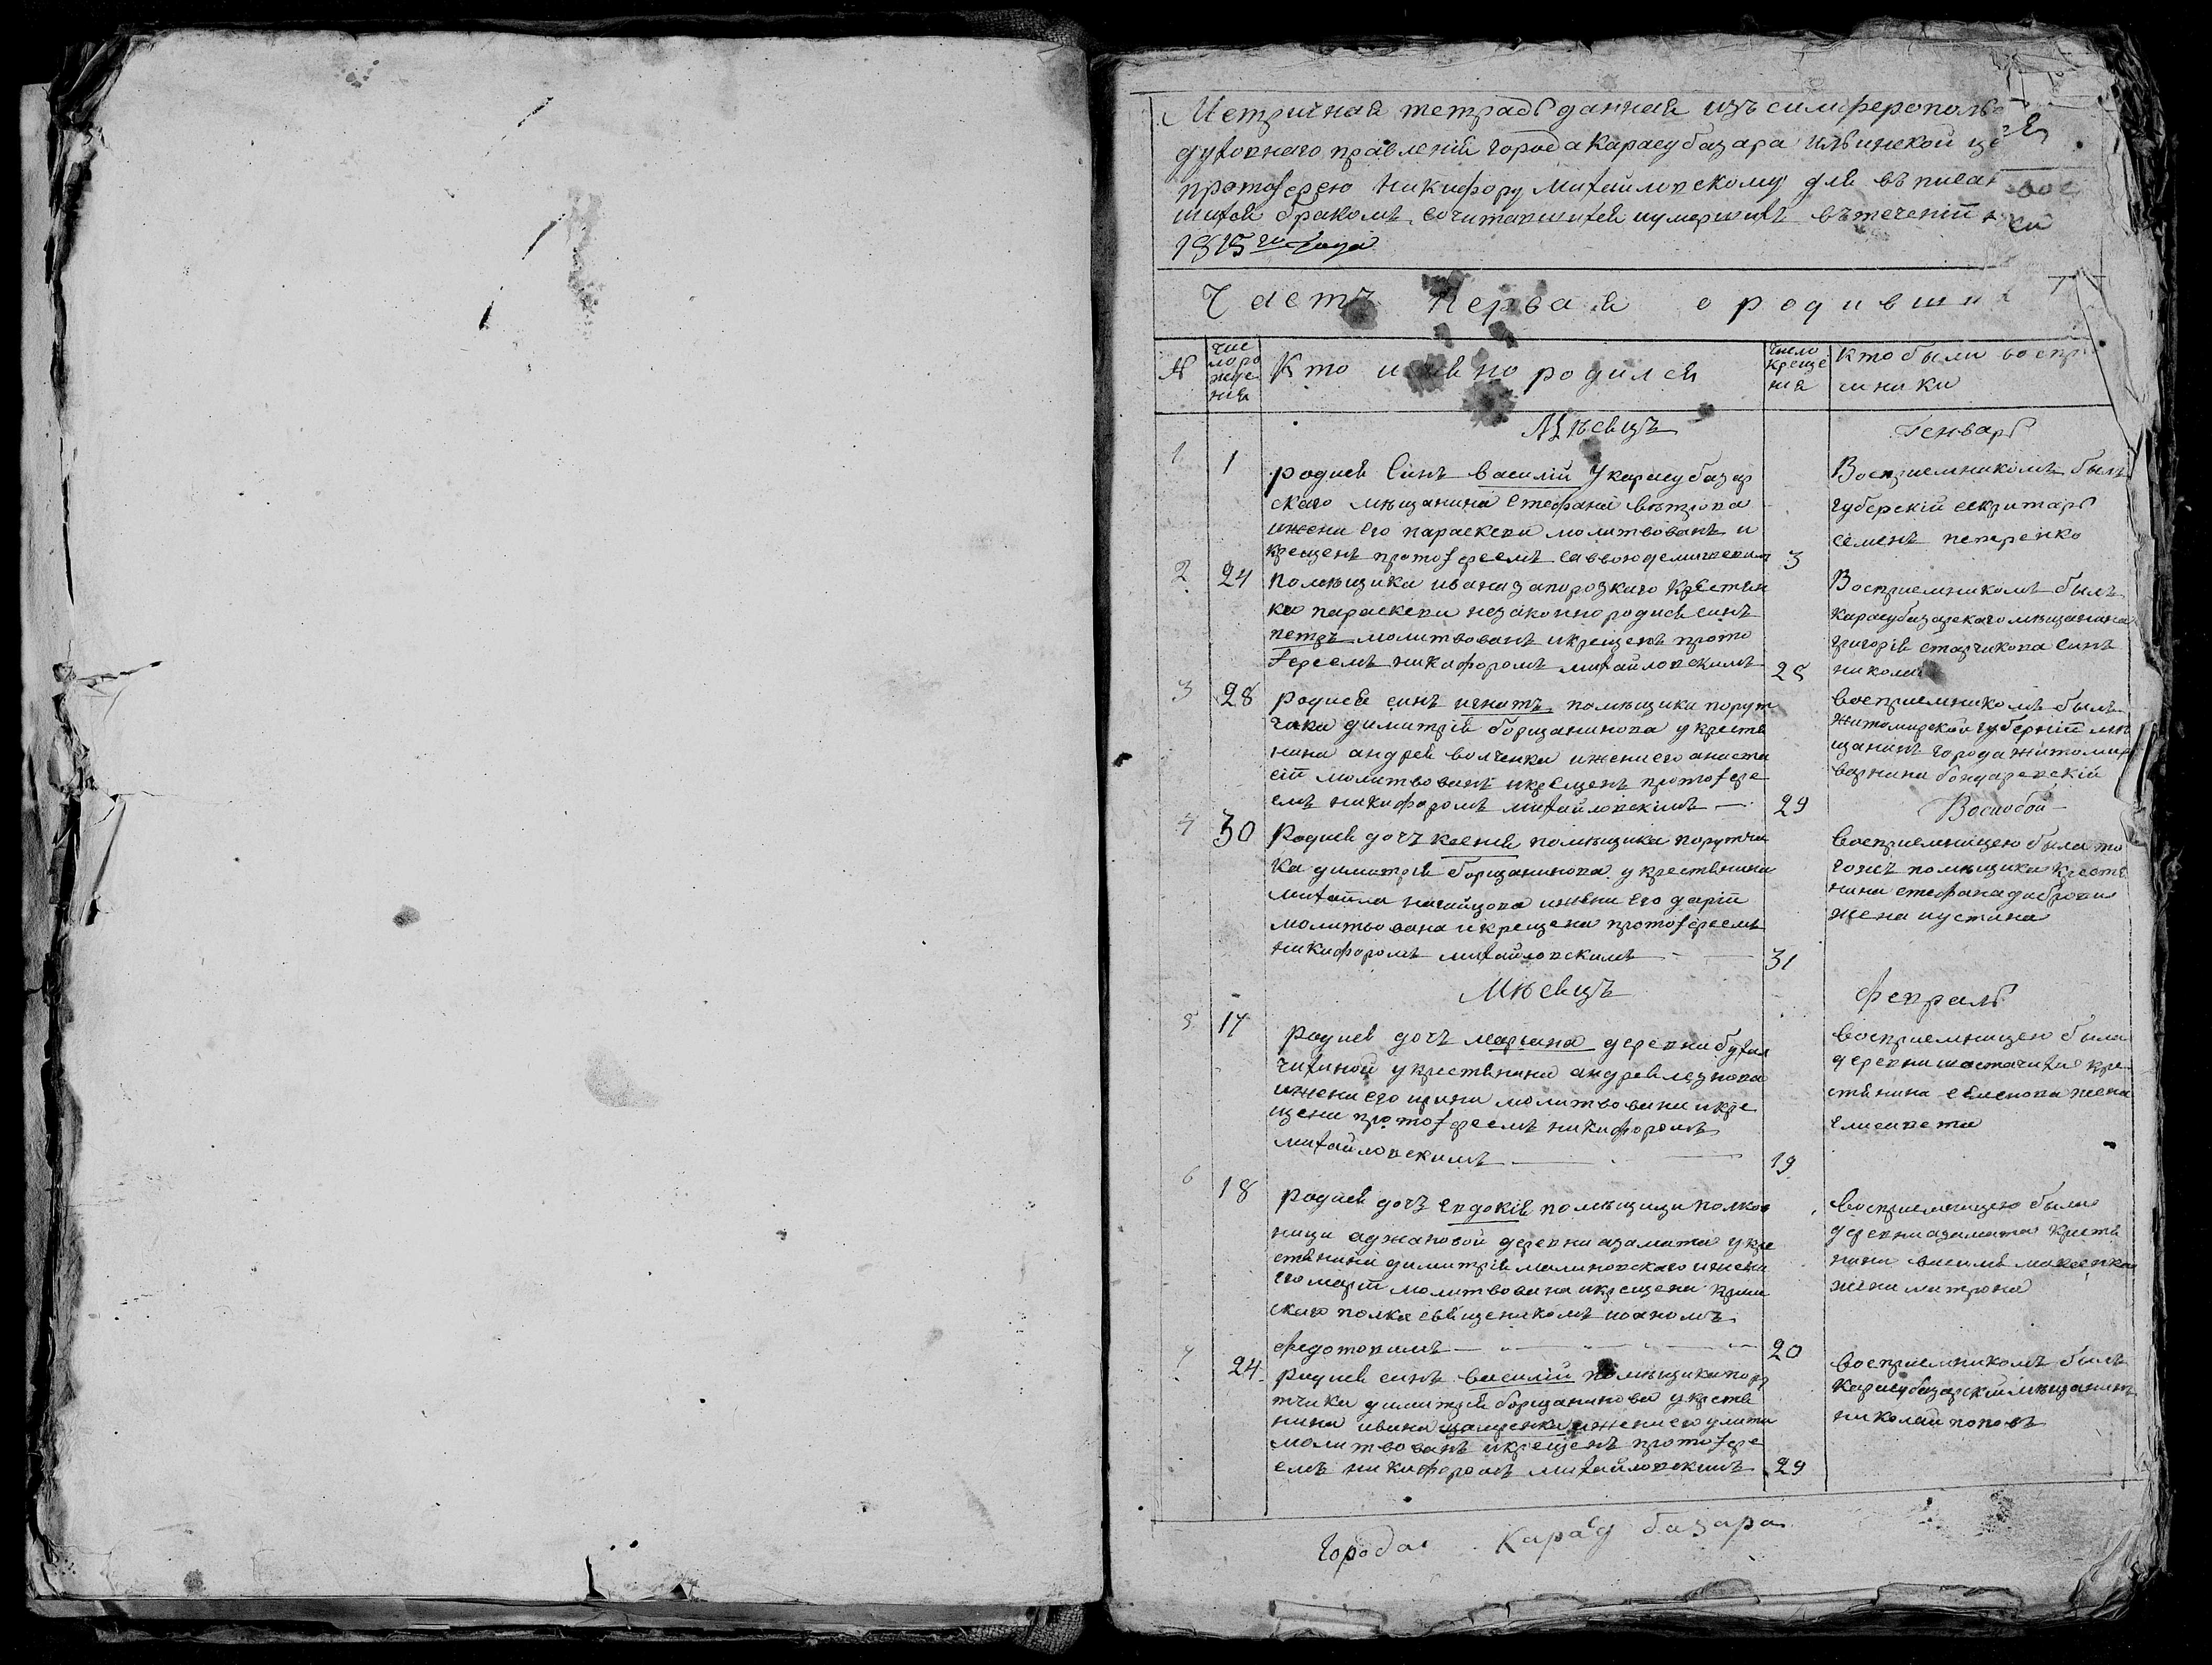 Метричная тетрадь данная изъ симферополь
духовнаго правленія города Карасубазара ильинской це
протоіерею Никифору Михайловскому для въписан
шихся бракомъ сочитавшихся иумершихъ въ теченіи
1815го Года
Часть первая о родивши
№ число рожденія Кто именно родился число крещенія кто были воспр
иники
Мѣсяцъ Генварь
1 1 родися Синъ Василій У карасубазар
скаго мѣщанина Стефана вѣтрова
ижени Его параскеви молитвованъ и
крещенъ протоіереемъ 3
Восприемникомъ былъ
Губерскій секритарь
Семенъ петренко
2 24 помѣщика ивана запорозкаго Крестян
ки параскеви незаконно родися синъ
петръ молитвованъ икрещенъ прото
іереемъ никифоромъ михайловскимъ 25
Восприемникомъ былъ
Карасубазарскаго мѣщанина
григорія старчикова Синъ
николай
3 28 родися синъ игнатъ помѣщика порут
чика димитрія борщанинова у крестя
нина андрея волченка ижени его анаста
сіи молитвованъ икрещенъ протоіере
емъ никифоромъ михайловскимъ 29
восприемникомъ былъ
житомирской губерніи мѣ
щанинъ города житомир
бондаревскій
Восиобои
4 30 Родися дочъ ксенія помѣщика порутчи
ка димитрія борщанинова у крестянина
михаила нагайцова ижени Его даріи
молитвована икрещена протоіереемъ
никифоромъ михайловскимъ 31
восприемницею была то
гожъ помѣщика крестя
нина стефана
жена иустина
Мѣсяцъ Февраль
5 17 родися дочъ мариана деревни
чихиной у крестянина андрея
ижени его ирини молитвована икре
щена протоіереемъ никифоромъ
михайловскимъ 19
восприемницею была
деревни кре
стянина семенова жена
Елисавета
6 18 родися дочъ Евдокія помѣщици полков
ници аджановой деревни азамата у кре
стянина димитрія малиновскаго ижени
его маріи молитвована икрещена крим
скаго полка священикомъ иоаномъ
федотовимъ 20
восприемницею была
деревни азамата крестя
нина василя
жена матрона
7 24 родися синъ василій помѣщика пору
тчика димитрія борщанинова у крестя
нина ивана ижени его улити
молитвованъ икрещенъ протоіере
емъ никифоромъ михайловскимъ 29
восприемникомъ былъ
карасубазарскій мѣщанинъ
николай поповъ
Города Карасу базара